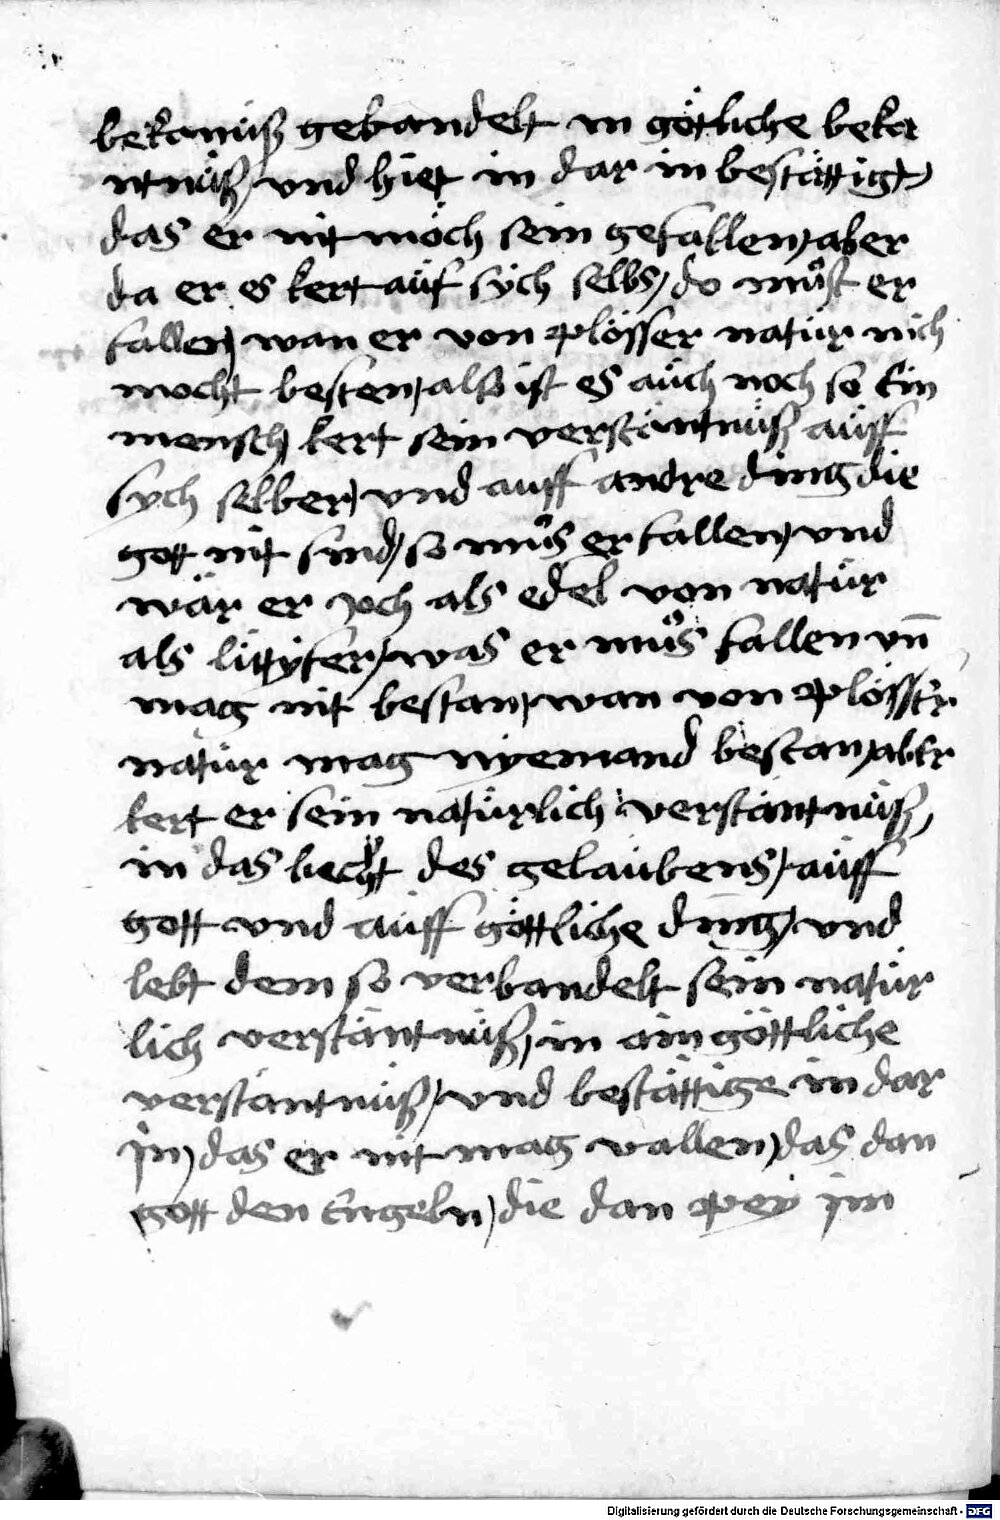 bekanüß gebandelt in götliche beka
ntnüß / vnd hiet in dar in bestättigt /
das er nit möch sein gefallen / aber
da er es kert aüf sÿch selbs / do muͦst er
fallen / wan er von plösser natür nich
mocht besten / also ist es aüch noch so Ein
mensch kert sein verstäntnüß aüff
sÿch selber / vnd auff andre ding die
gott nit sind / so muͦs er fallen / vnd
wär er joch als edel von natür
als lüczÿfer / was er muͦs fallen vn̄
mag nit bestan / wan von plösser
natür mag nyemand bestan / aber
kert er sein natürlich verstäntnüß /
in das liecht des gelaübens / aüff
gott vnd aüff göttliche ding / vnd
lebt dem so verbandelt sein natür
lich verstäntnüß / in ain göttliche
verstäntnüß / vnd bestättige in dar
in / das er nit mag vallen / das dan
gott den Engeln / die dan pey im
Digitalisierung gefördert durch die Deutsche Forschungsgemeinschaft - DFG